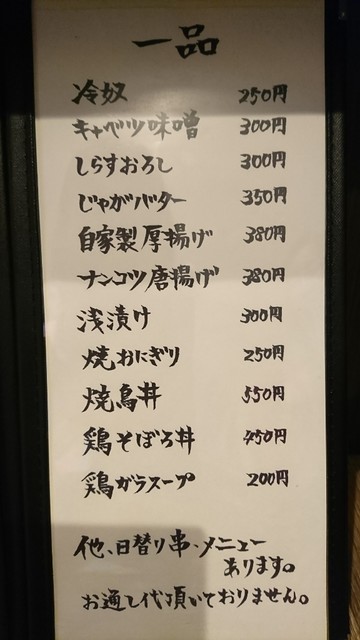 一品
冷奴 250円
キャベツ味噌 300円
しらすおろし 300円
じゃがバター 350円
自家製厚揚げ 380円
ナンコツ唐揚げ 380円
浅漬け 300円
焼おにぎり 250円
焼鳥丼 550円
鶏そぼろ丼 450円
鶏ガラスープ 200円
他、日替り串・メニュー
あります。
お通し代頂いておりません。